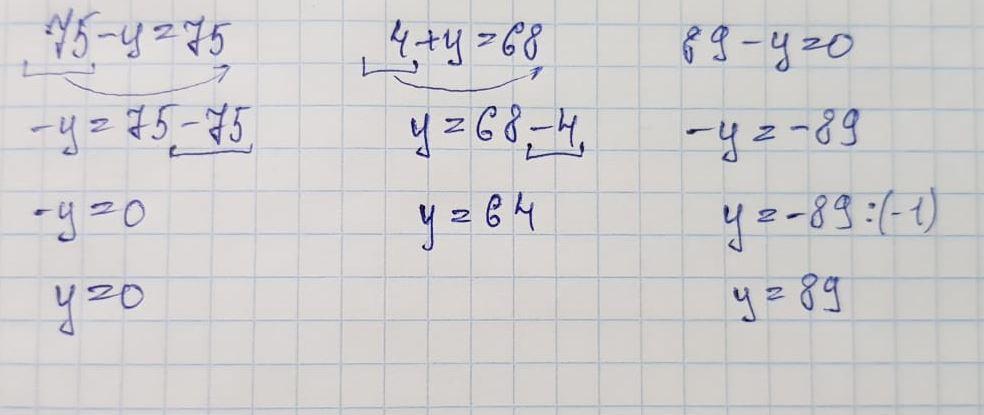 75-y=75
-y=75-75
-y=0
y=0
4+y=68
y=68-4
y=64
89-y=0
-y=-89
y=-89:(-1)
y=89